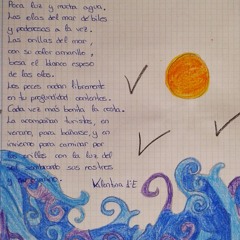 Poca luz y mucha agua.
Las olas del mar débiles
y poderosas a la vez.
Las orillas del mar,
con su color amarillo,
besa el blanco espeso
de las olas.
Los peces nadan libremente
en tu profundidad contentos.
Cada vez más bonita la costa.
La acompañan turistas, en
verano, para bañarse, y en
invierno para caminar por
las orillas con la luz del
sol sus rostros
y
Valentina 1ºE